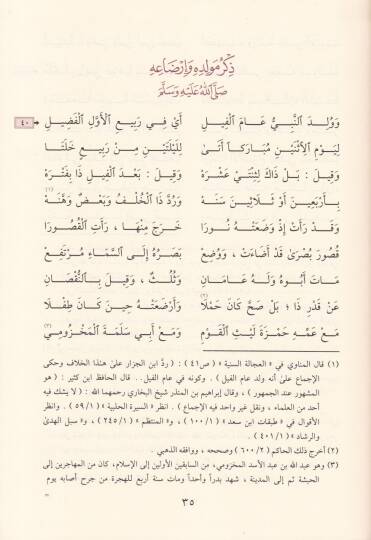 ذِكْرُ مَوْلِدِهِ وَإِرْضَاعِهِ
صَلَّى اللهُ عَلَيْهِ وَسَلَّمَ
وَوُلِدَ النَّبِيُّ عَامَ الْفِيلِ أَيْ فِي رَبِيعِ الأَوَّلِ الْفَضِيلِ ٤٠
لِيَوْمِ الِاثْنَيْنِ مُبَارَكاً أَتَىٰ لِلَيْلَتَيْنِ مِنْ رَبِيعٍ خَلَتَا
وَقِيلَ : بَلْ ذَاكَ لِثِنْتَيْ عَشْرَهْ وَقِيلَ : بَعْدَ الْفِيلِ ذَا بِفَتْرَهْ
بِأَرْبَعِينَ أَوْ ثَلَاثِينَ سَنَهْ وَرُدَّ ذَا الْخُلْفُ وَبَعْضٌ وَهَّنَهْ (١)
وَقَدْ رَأَتْ إِذْ وَضَعَتْهُ نُورَا خَرَجَ مِنْهَا ، رَأَتِ الْقُصُورَا
قُصُورَ بُصْرَىٰ قَدْ أَضَاءَتْ ، وَوُضِعْ بَصَرُهُ إِلَى السَّمَاءِ مُرْتَفِعْ
مَاتَ أَبُوهُ وَلَهُ عَامَانِ وَثُلُثٌ ، وَقِيلَ بِالنُّقْصَانِ
عَنْ قَدْرِ ذَا ؛ بَلْ صَحَّ كَانَ حَمْلَا (٢) وَأَرْضَعَتْهُ حِينَ كَانَ طِفْلَا
مَعْ عَمِّهِ حَمْزَةَ لَيْثِ الْقَوْمِ وَمَعْ أَبِي سَلَمَةَ الْمَخْزُومِي (٣)
(١) قال المناوي في « العجالة السنية » ( ص٤١ ) : ( ردَّ ابن الجزار علىٰ هذا الخلاف وحكى
الإجماع علىٰ أنه ولد عام الفيل ) . وكونه في عام الفيل.. قال الحافظ ابن كثير : ( هو
المشهور عند الجمهور ) ، وقال إبراهيم بن المنذر شيخ البخاري رحمهما الله : ( لا يشك فيه
أحد من العلماء ، ونقل غير واحد فيه الإجماع ) . انظر « السيرة الحلبية » ( ٥٩/١ ) . وانظر
الأقوال في « طبقات ابن سعد » ( ١٠٠/١ ) ، و« المنتظم » ( ٢٤٥/١ ) ، و« سبل الهدىٰ
والرشاد » ( ٤٠١/١ ) .
(٢) أخرج ذلك الحاكم ( ٦٠٠/٢ ) وصححه ، ووافقه الذهبي .
(٣) وهو عبد الله بن عبد الأسد المخزومي، من السابقين الأولين إلى الإسلام، كان من المهاجرين إلى
الحبشة ثم إلى المدينة ، شهد بدراً وأحداً ومات سنة أربع للهجرة من جرح أصابه يوم
٣٥